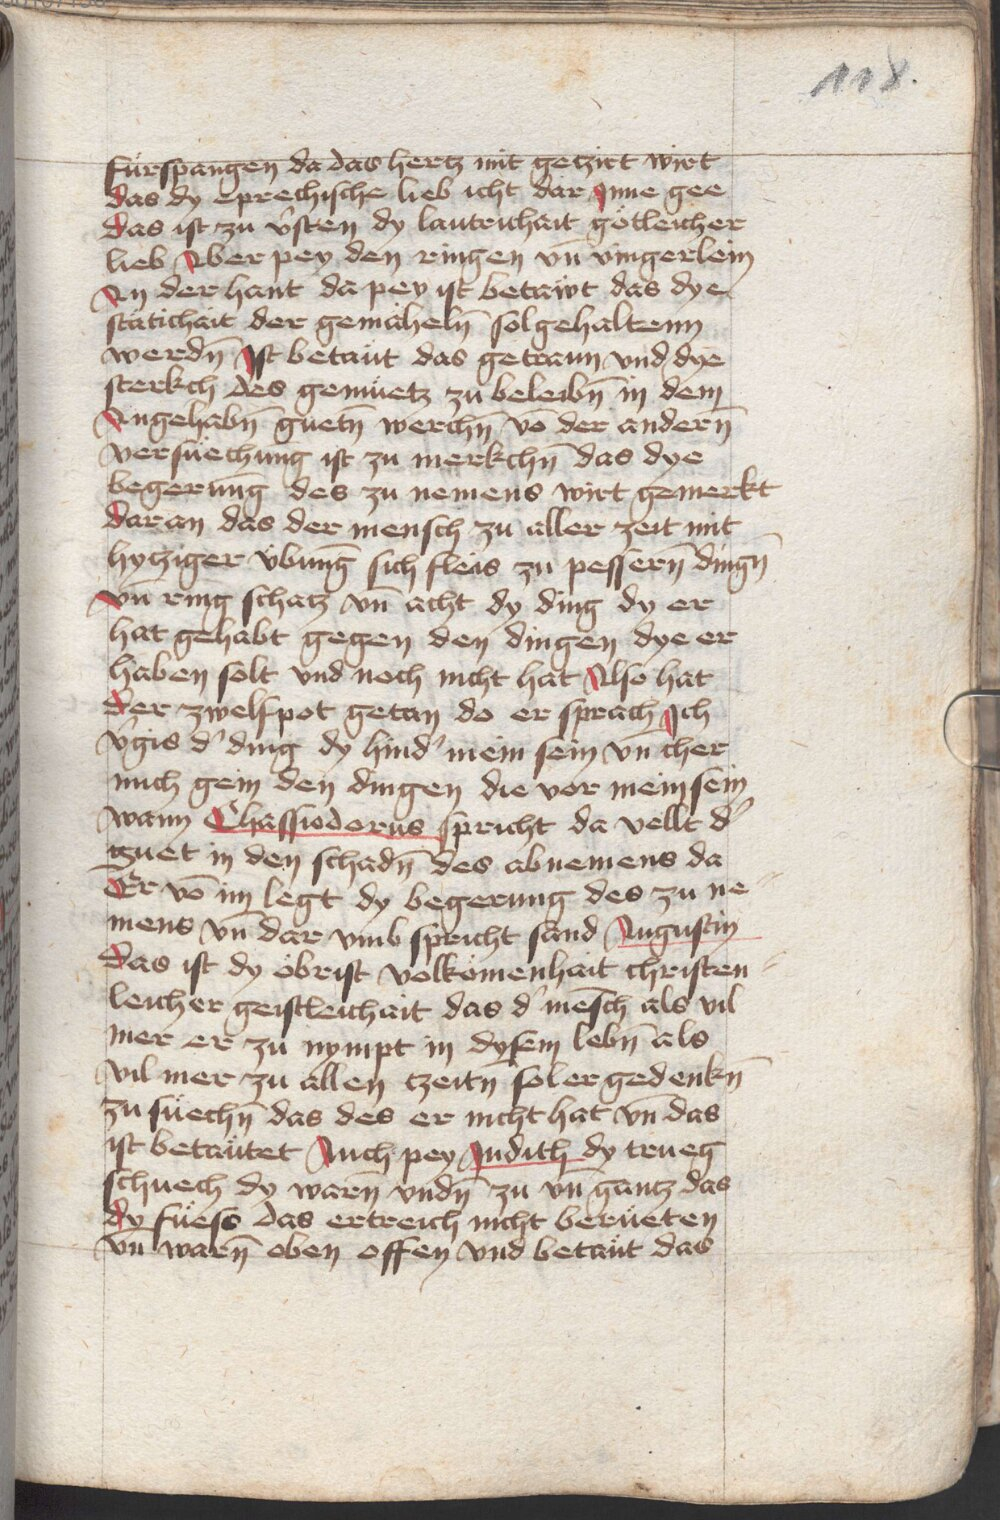 118.
fürspangen da das hertz mit getzirt wirt
das dy eprechische lieb icht dar Inne gee
das ist zu v̄sten dy lautrichait götleicher
lieb Aber pey den ringen vn̄ vingerlein
An der hant da pey ist betäwt das dye
stätichait der gemäheln̄ sol gehaltenn
werdn̄ Ist betäut das getrawn vnd dye
sterkch des gemüetz zu beleibn̄ in dem
Angehabn̄ guetn̄ werchn̄ vō der andern̄
versüechung ist zu merkchn̄ das dye
begerung des zu nemens wirt gemerkt
daran das der mensch zu aller zeit mit
hytziger übung sich fleis zu pessern̄ dingn̄
vn̄ ring schatz vn̄ acht dy ding dy er
hat gehabt gegen den dingen dye er
haben solt vnd noch nicht hat Also hat
der zwelfpot getan do er sprach Ich
v̄gis d' ding dy hind' mein sein vn̄ cher
mich gein den dingen die vor mein sein
wann Chassiodorus spricht da vellt d'
guet in den schadn̄ des abnemens da
Er vō im legt dy begerung des zu ne
mens vn̄ dar vmb spricht sand Augustin
das ist dy öbrist volkomenhait christen
leicher geistleichait das d' mēsch als vil
mer er zu nympt in dysem lebn̄ als
vil mer zu allen tzeitn̄ sol er gedenkn̄
zu süechn̄ das des er nicht hat vn̄ das
ist betäutet Auch pey Judith dy trueg
schuech dy warn̄ vndn̄ zu vn̄ gantz das
dy füess das ertreich nicht berüeten
vn̄ warn̄ oben offen vnd betäut das